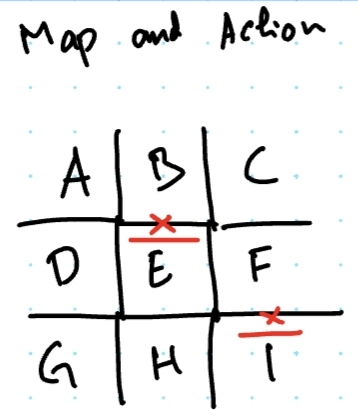 Map and Action
A B C
D E F
G H I